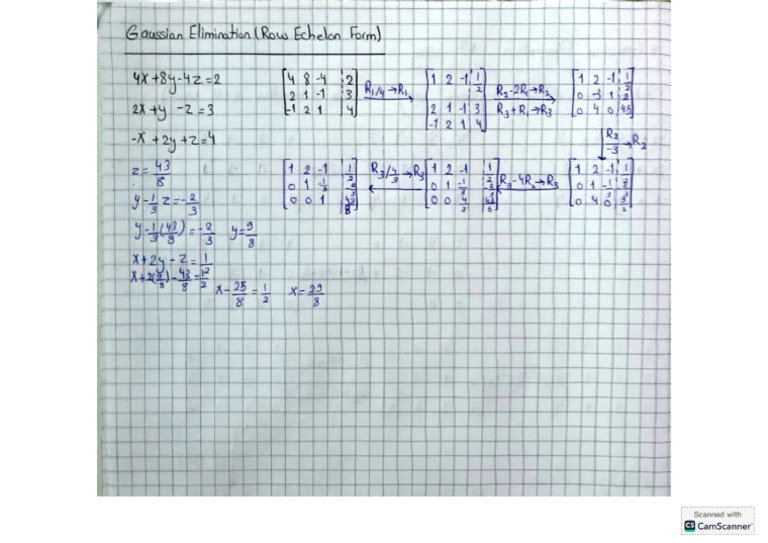 Gaussian Elimination (Row Echelon Form)
4x+8y-4z=2
2x+y-z=3
-x+2y+z=4
[4 8 -4 | 2
2 1 -1 | 3
-1 2 1 | 4]
R1/4→R1
[1 2 -1 | 1/2
2 1 -1 3
-1 2 1 4]
R2-2R1→R2
R3+R1→R3
[1 2 -1 | 1/2
0 -3 1 | 2
0 4 0 | 4.5]
R2/-3→R2
[1 2 -1 | 1/2
0 1 -1/3
0 4 0]
R3-4R2→R3
[1 2 -1 1/2
0 1 -1/3 -2/3
0 0 4/3 43/6]
R3/4/3→R3
[1 2 -1 | 1/2
0 1 -1/3
0 0 1 | 43/8]
z=43/8
y-1/3 z=-2/3
y-1/3(43/8)=-2/3 y=9/8
x+2y-z=1/2
x+2(9/8)-43/8=1/2
x-25/8=1/2 x=29/8
Scanned with
CS CamScanner